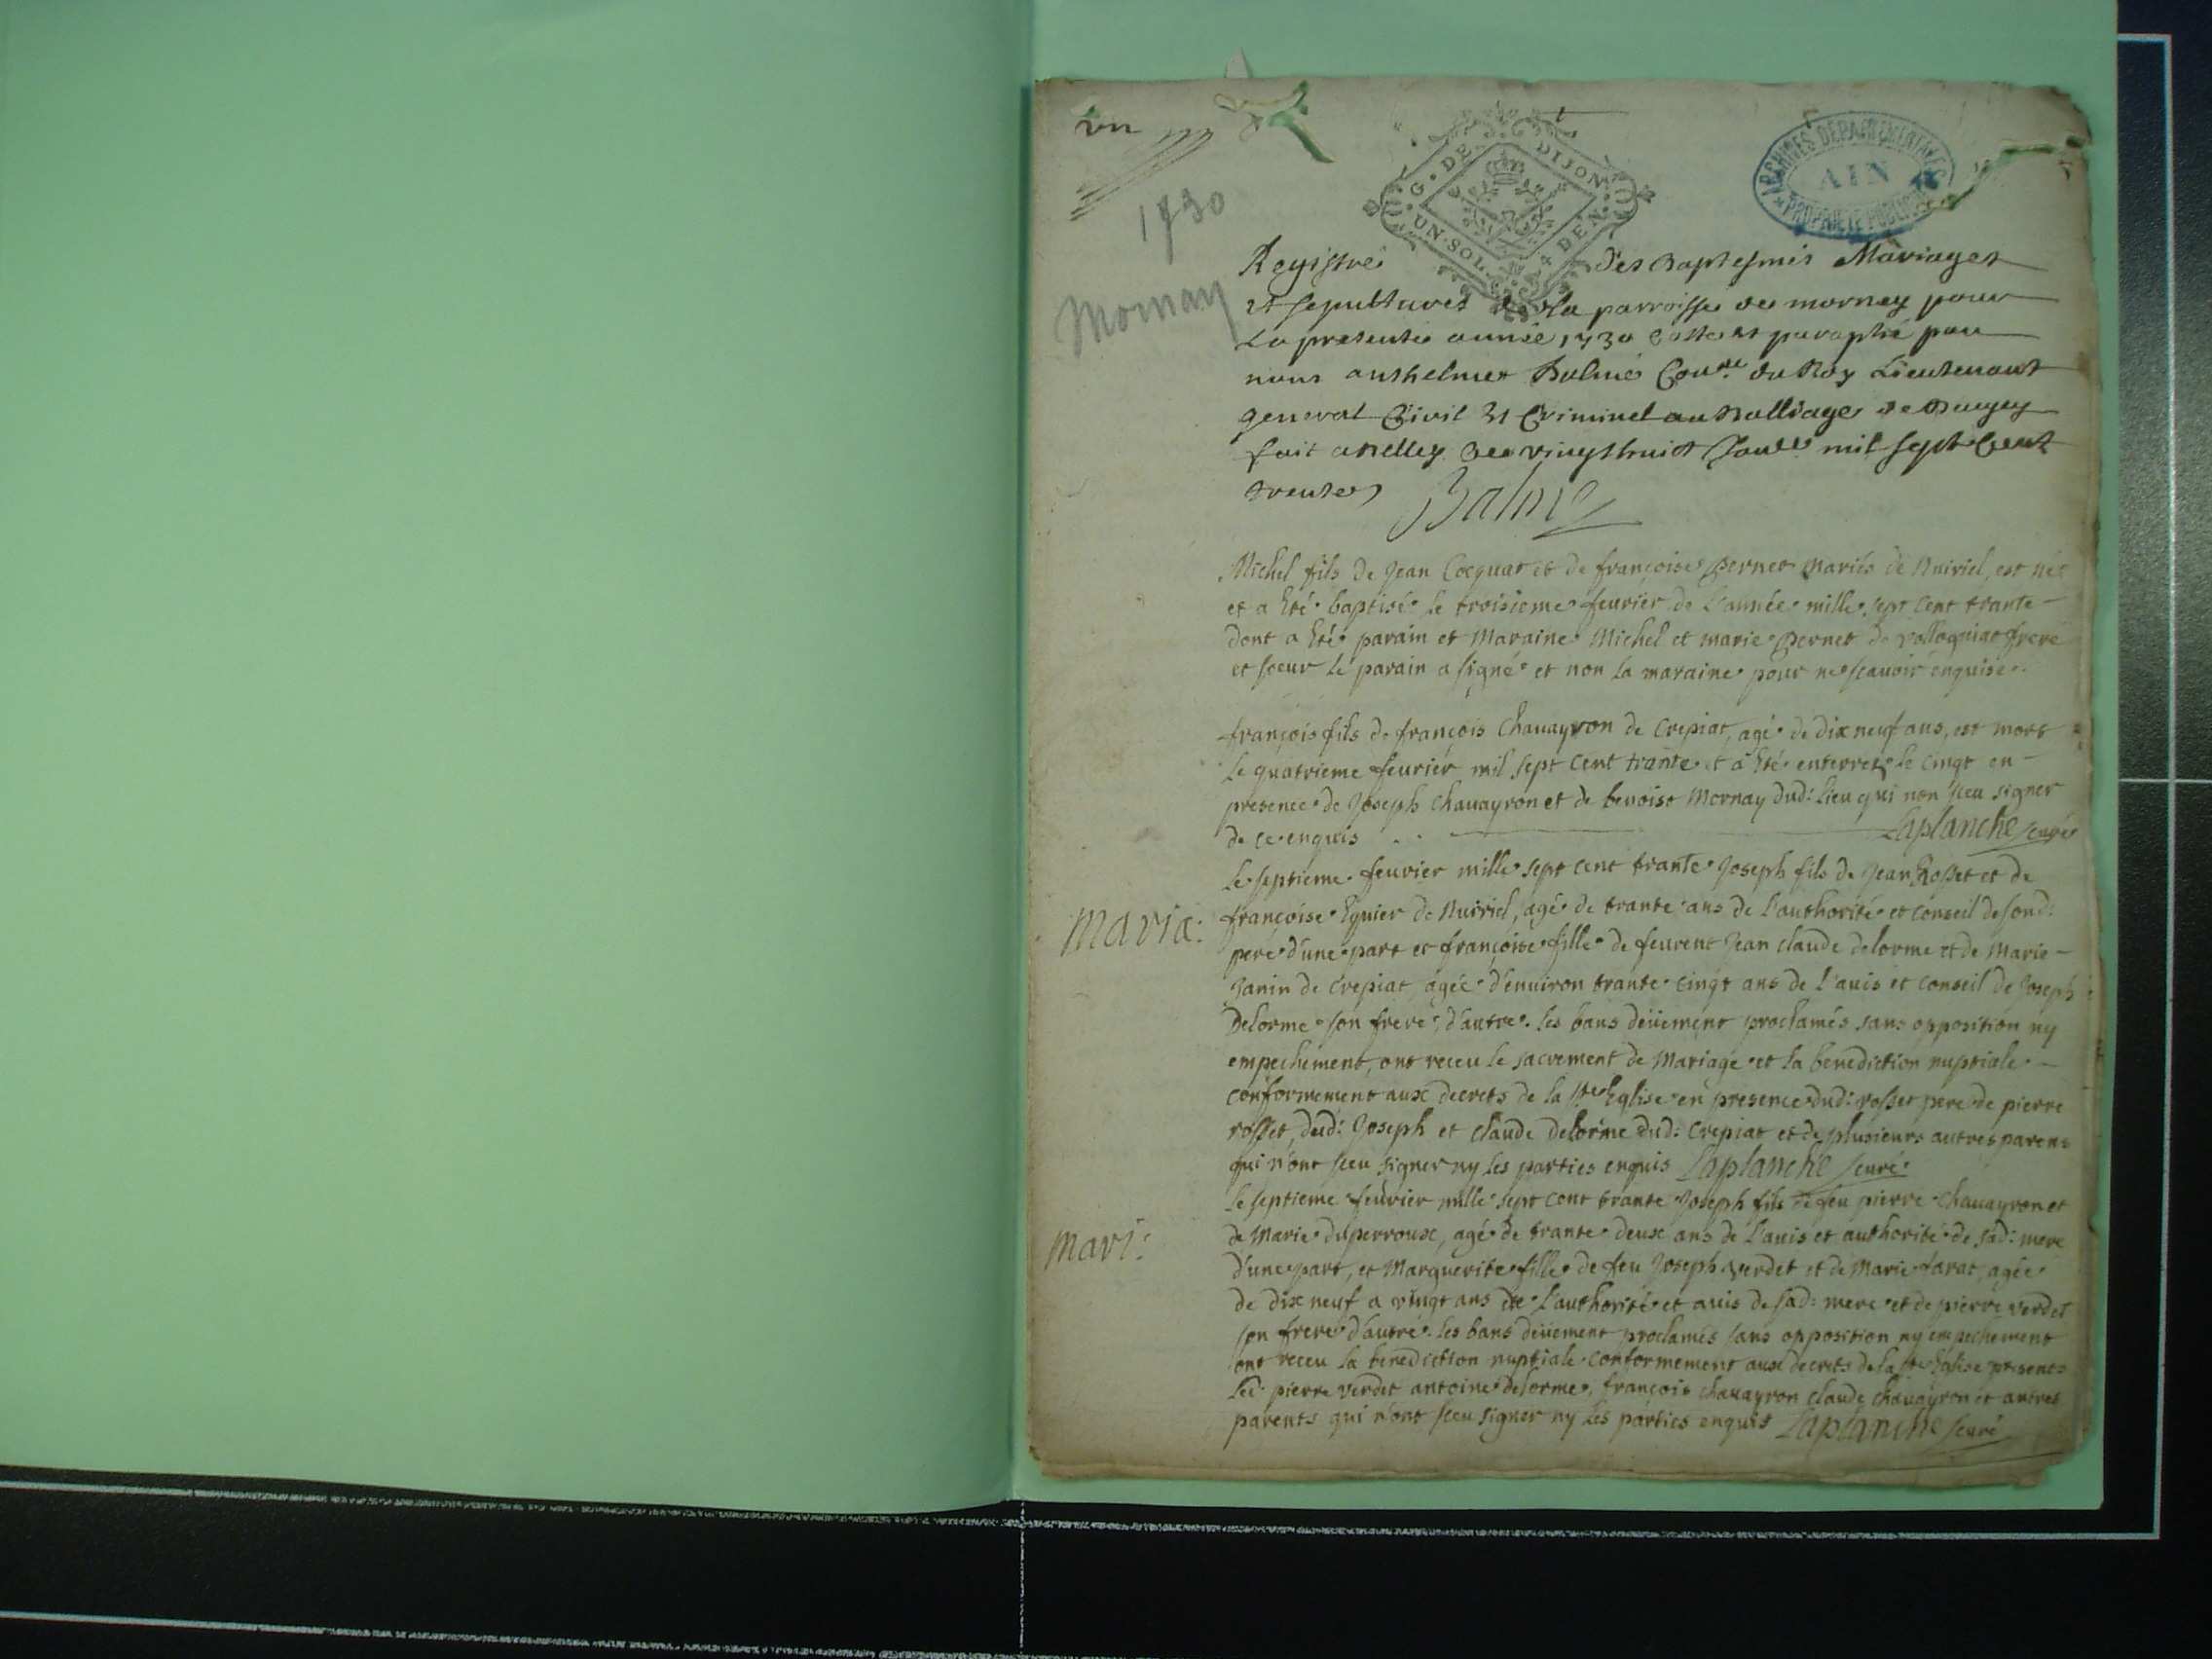 un
1730
Mornay
G. DE DIJON
UN. SOL. 4 DEN.
ARCHIVES DEPARTEMENTALES
AIN
PROPRIETE PUBLIQUE
Registre des Baptesmes Mariages
et sepultures de la parroisse de mornay pour
La presente année 1730 Cotte et paraphé par
nous anthelmet Balme Con.er du Roy Lieutenant
general Civil et Criminel au Balliage de Bugey
fait a Belley Ce vingt huit Janv.er mil sept Cent
trente
Balme
Michel fils de Jean Cocquat et de françoise Pernet mariés de Nuiriel, est né
et a Eté baptisé le troisieme feurier de L'année mille sept cent trante
dont a Eté parain et Maraine Michel et marie Pernet de volloquiat frere
et soeur le parain a signé et non la maraine pour ne scauoir enquise.
françois fils de françois Chauayron de Crepiat, agé de dix neuf ans, est mort
le quatrieme feurier mil sept cent trante et a Eté enterret le cinqt en
presence de Joseph chauayron et de benoist Mornay dud: lieu qui non sceu signer
de ce enquis Laplanche curé
Le septieme feurier mille sept cent trante Joseph fils de Jean Rosset et de
Maria: françoise Eynier de Nuiriel, agé de trante ans de l'authorité et conseil de sond:
pere d'une part et françoise fille de feurent Jean claude delorme et de Marie
Janin de Crepiat agée d'enuiron trante cinqt ans de l'auis et conseil de Joseph
Delorme son frere, d'autre. les bans deüement proclamés sans opposition ny
empechement, ont receu le sacrement de Mariage et la benediction nuptiale
conformement aux decrets de la Ste Eglise en presence dud: rosset pere de pierre
rosset, dud: Joseph et claude delorme dud: Crepiat et de plusieurs autres parens
qui n'ont sceu signer ny les parties enquis Laplanche curé
Le septieme feurier mille sept cent trante Joseph fils de feu pierre chauayron et
Mari: de Marie duperroux, agé de trante deux ans de l'auis et authorité de sad: mere
d'une part, et Marguerite fille de feu Joseph verdet et de Marie farat, agée
de dix neuf a vingt ans de l'authorité et auis de sad: mere et de pierre verdet
son frere d'autre. les bans deüement proclamés sans opposition ny empechement
ont receu la benediction nuptiale conformement aux decrets de la ste Eglise presents
led: pierre verdet antoine delorme, françois chauayron claude chauayron et autres
parents qui n'ont sceu signer ny les parties enquis Laplanche curé